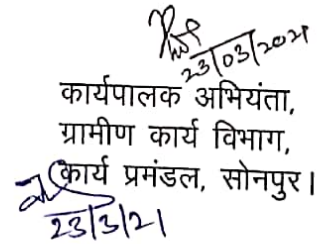 23/03/2021
कार्यपालक अभियंता,
ग्रामीण कार्य विभाग,
कार्य प्रमंडल, सोनपुर।
23/3/21